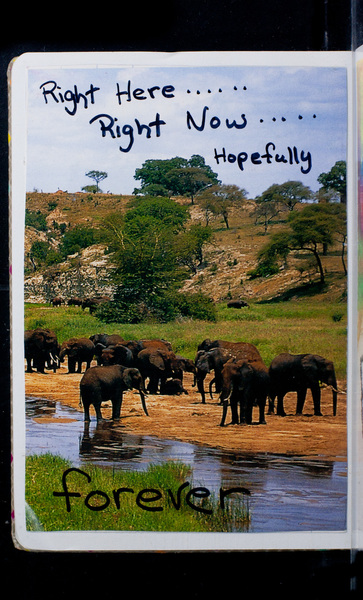 Right Here ......
Right Now .....
Hopefully
forever